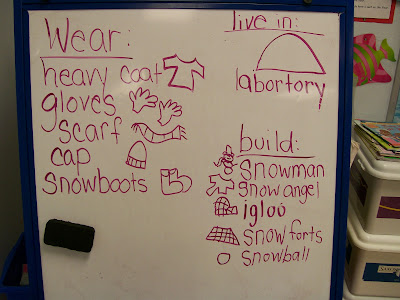 Wear:
heavy coat
gloves
scarf
cap
snowboots
live in:
labortory
build:
snowman
snow angel
igloo
snow forts
snowball